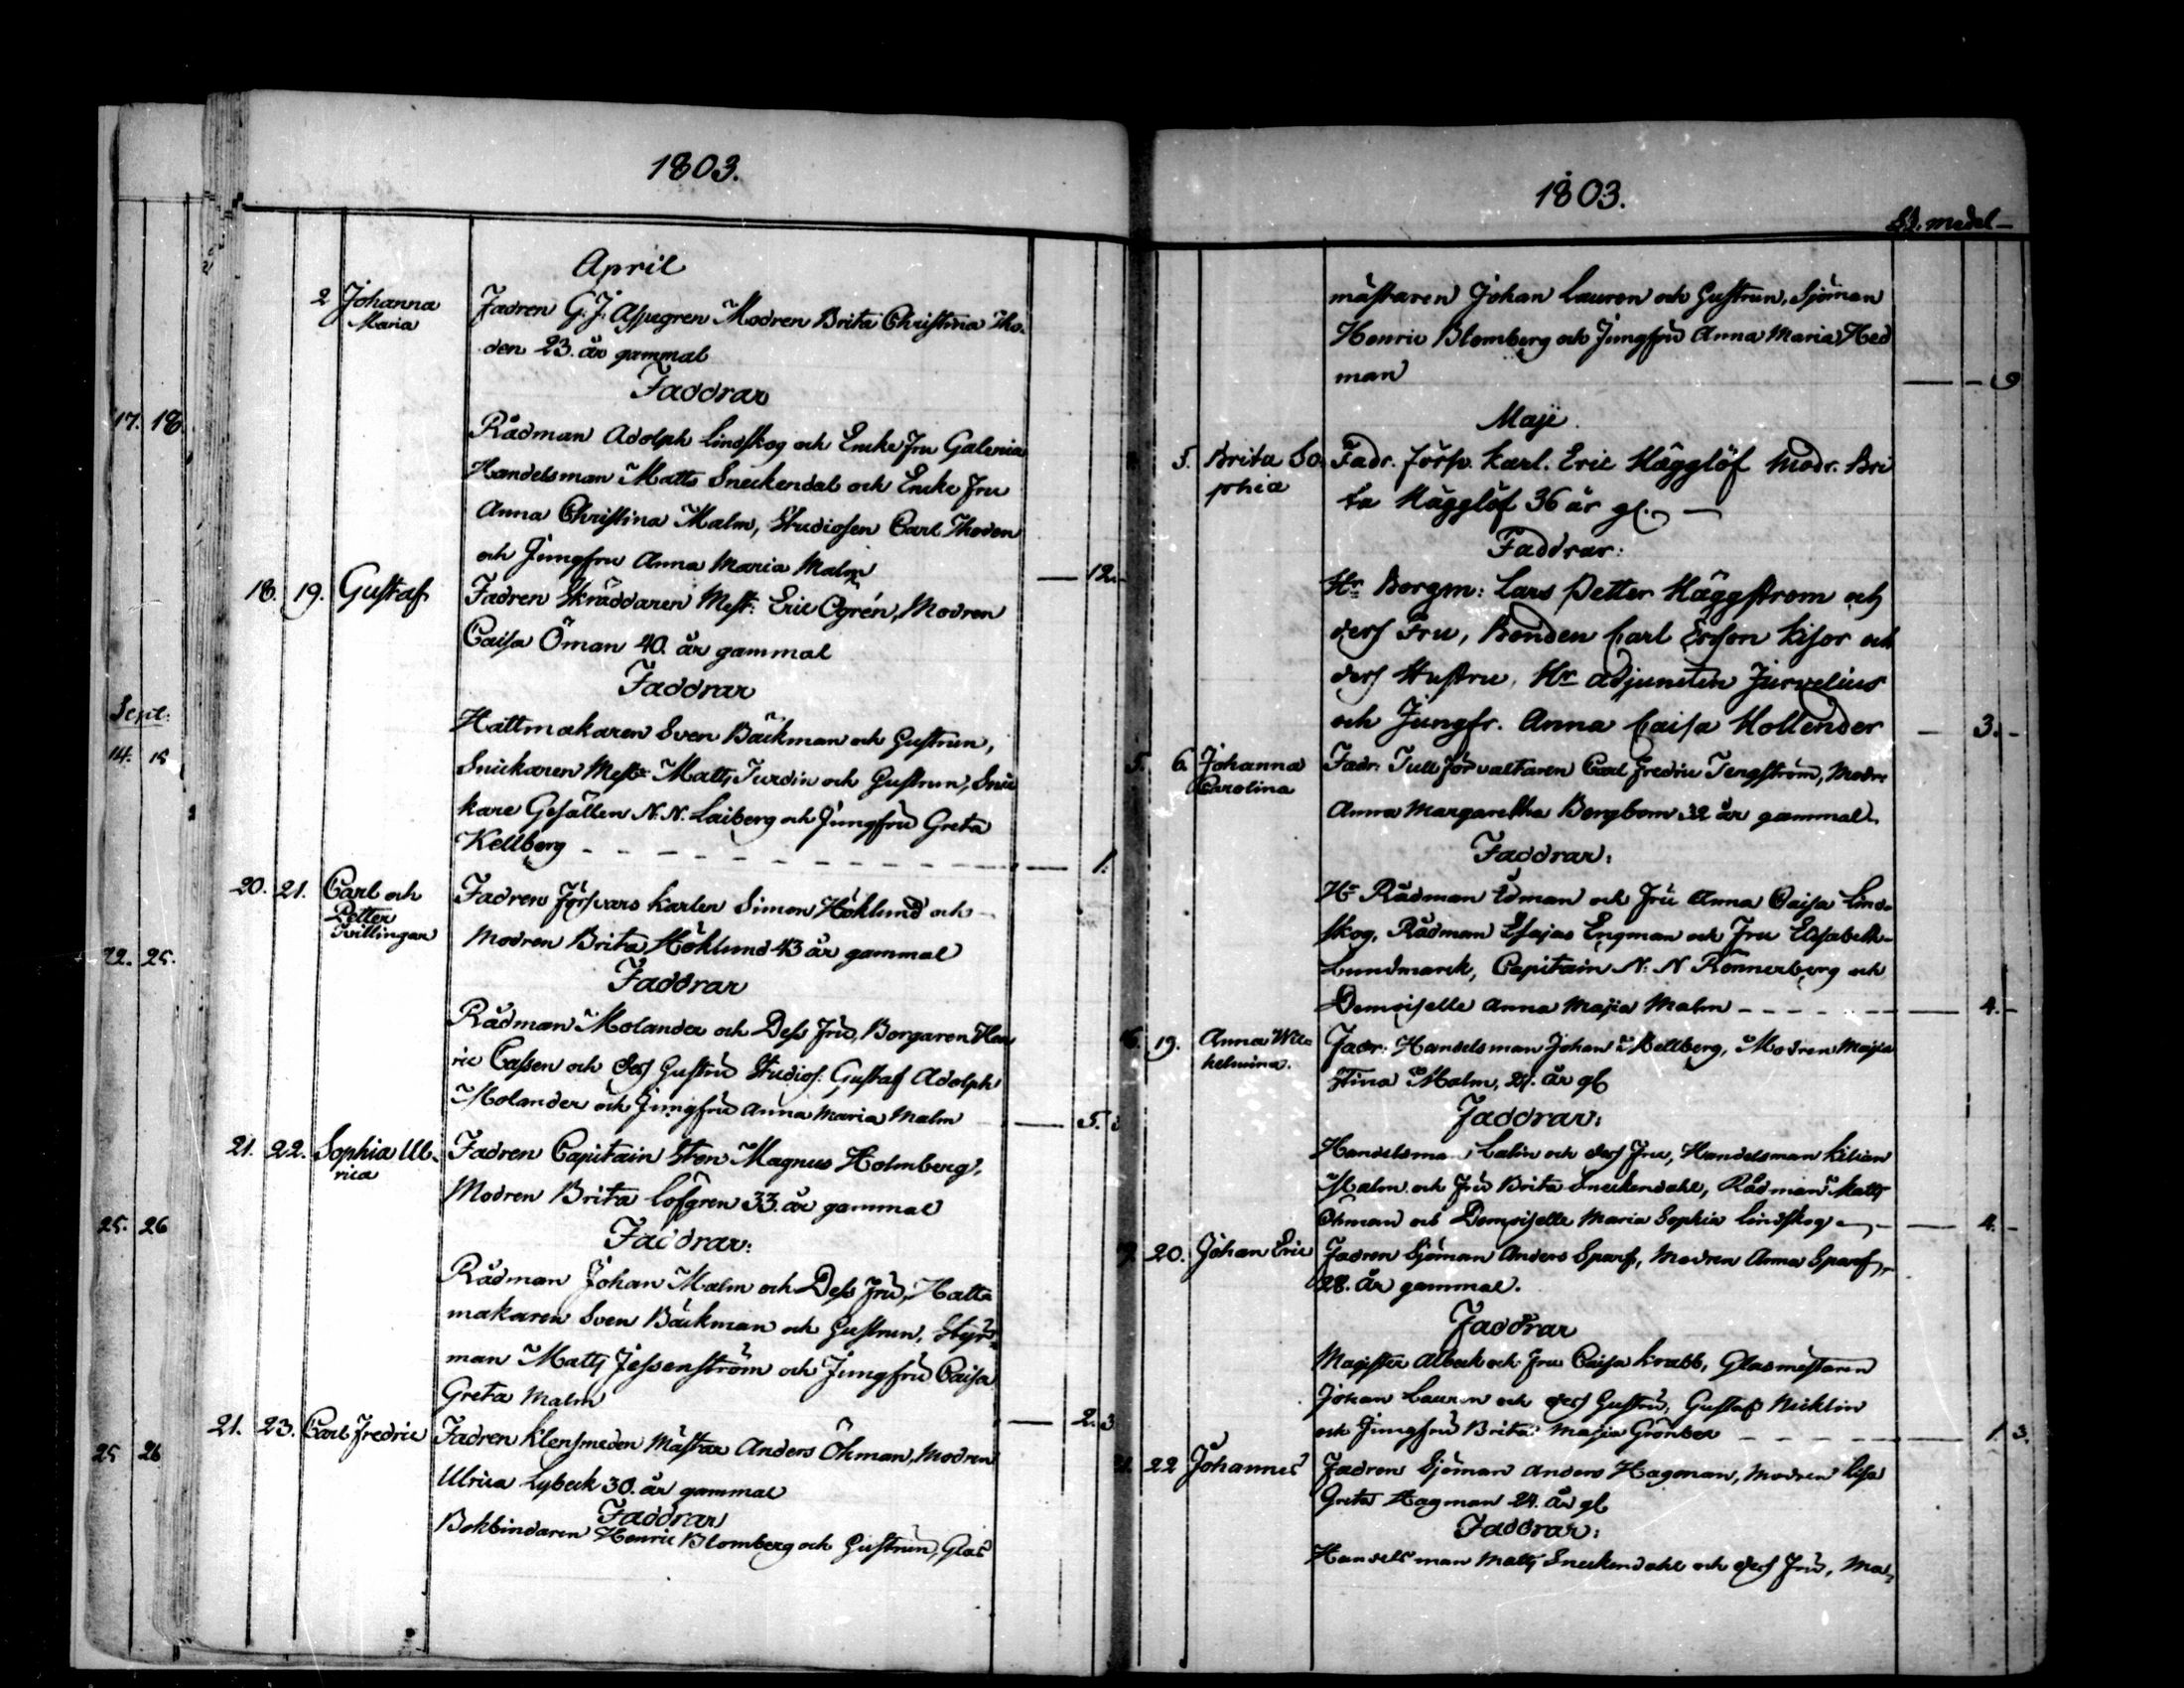 1803.
April
2 Johanna Maria
Fadren G. J. Aspegren Modren Brita Christina Tho-
den 23. år gammal
Faddrar
Rådman Adolph Lindskog och Encke Fru Galenia
Handelsman Matts Sneckendal och Encke Fru
Anna Christina Malm, Studiosen Carl Thoden
och Jungfru Anna Maria Malm — 12.
18. 19. Gustaf
Fadren Skräddaren Mest: Eric Ögrén, Modren
Caisa Öman 40. år gammal
Faddrar
Hattmakaren Sven Bäckman och Hustrun,
Snickaren Mest: Matts Turdin och Hustrun, Snic
kare Gesällen N. N. Laiberg och Jungfru Greta
Kellberg — 1.
20. 21. Carl och
Petter
Tvillingar
Fadren Försvars Karlen Simon Höklund och
Modren Brita Höklund 43 år gammal
Faddrar
Rådman Molander och Dess Fru, Borgaren Hen
ric Cajsen och dess Hustru Studios: Gustaf Adolph
Molander och Jungfru Anna Maria Malm — 5.
21. 22. Sophia Ul-
rica
Fadren Capitain Sten Magnus Holmberg,
Modren Brita Löfgren 33. år gammal
Faddrar:
Rådman Johan Malm och Dess Fru, Hatt-
makaren Sven Bäckman och Hustrun, Styr-
man Matts Jessenström och Jungfru Caisa
Greta Malm — 2. 3
21. 23. Carl Fredric
Fadren Klensmeden Mästar Anders Öhman, Modren
Ulrica Lybeck 30. år gammal
Faddrar
Bokbindaren Henric Blomberg och Hustrun, Glas
17. 18.
Sept:
14. 15
22. 25.
25. 26
25 26
1803.
medel —
mästaren Johan Lauren och Hustrun, Sjöman
Henric Blomberg och Jungfru Anna Maria Hed
man — 9
Maji.
5. Brita So
phia
Fadr. Försv. Karl. Eric Hägglöf Modr. Bri
ta Hägglöf 36 år gl. —
Faddrar:
Hr Borgm: Lars Petter Häggström och
dess Fru, Bonden Carl Ersson Kisor och
dess Hustru, Hr Adjuncten Jurvelius
och Jungfr. Anna Caisa Hollender — 3. -
5. 6. Johanna
Carolina
Fadr: Tull Förvaltaren Carl Fredric Tengström, Modr:
Anna Margaretha Bergbom 32 år gammal.
Faddrar:
Hr Rådman Edman och Fru Anna Caisa Lind-
skog, Rådman Esajas Engman och Fru Elisabeth
Lundmarck, Capitain N. N Rönnerberg och
Demoiselle Anna Majia Malm — 4. -
19. Anna Wil-
helmina.
Fadr: Handelsman Johan Mellberg, Modren Majia
Stina Malm, 21. år gl
Faddrar:
Handelsman Calin och dess Fru, Handelsman Kilian
Malm och Fru Brita Sneckendahl, Rådman Matts
Öhman och Demoiselle Maria Sophia Lindskog — 4. -
20. Johan Eric
Fadren Sjöman Anders Sparf, Modren Anna Sparf,
28. år gammal.
Faddrar
Magister Albeck och Fru Caisa Krabb, Glasmestaren
Johan Lauren och dess Hustru, Gustaf Nicklin
och Jungfru Brita Majia Grönber — 1 3.
21. 22 Johannes
Fadren Sjöman Anders Hagman, Modren Lisa
Greta Hagman 24. år gl
Faddrar:
Handelsman Matts Sneckendahl och dess Fru, Ma-